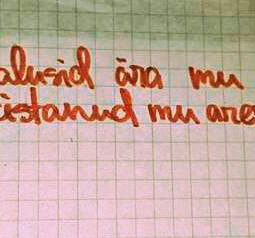 alusid ära mu
istanud mu are